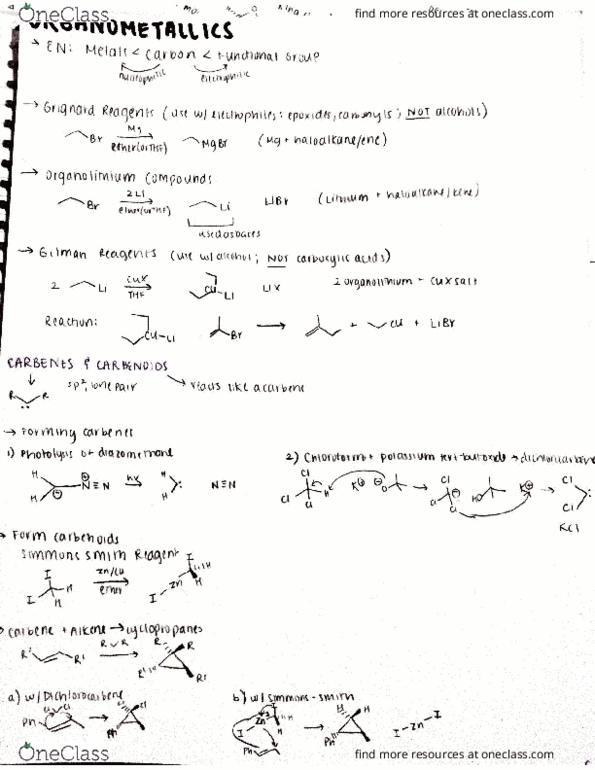 OneClass
find more resources at oneclass.com
ORGANOMETALLICS
→ EN: Metals < Carbon < Functional Group
nucleophilic electrophilic
→ Grignard Reagents (use w/ electrophiles: epoxides, carbonyls; NOT alcohols)
Br Mg ether (or THF) MgBr (Mg + haloalkane/ene)
→ Organolithium Compounds
Br 2Li ether (or THF) Li LiBr (Lithium + haloalkane/ene)
used as bases
→ Gilman Reagents (use w/ alcohol; NOT carboxylic acids)
2 Li CuX THF Cu-Li LiX 2 organolithium + CuX salt
Reaction: Cu-Li Br → + Cu + LiBr
CARBENES & CARBENOIDS
sp², lone pair → reacts like a carbene
R R
→ Forming carbenes
1) Photolysis of diazomethane
2) Chloroform + potassium tert-butoxide → dichlorocarbene
H H ⊖ ⊕ N≡N hv → H H : N≡N
Cl Cl Cl H K⊕ ⊖O → Cl Cl Cl ⊖ HO K⊕ → Cl Cl :
KCl
→ Form carbenoids
Simmons Smith Reagent
I I H H Zn/Cu ether I Zn I H H
→ Carbene + Alkene → cyclopropanes
R' R' R R → R R R' R'
a) w/ Dichlorocarbene
b) w/ Simmons-Smith
Ph Cl Cl → Cl Cl Ph
I Zn I H H Ph → H H Ph I-Zn-I
OneClass
find more resources at oneclass.com